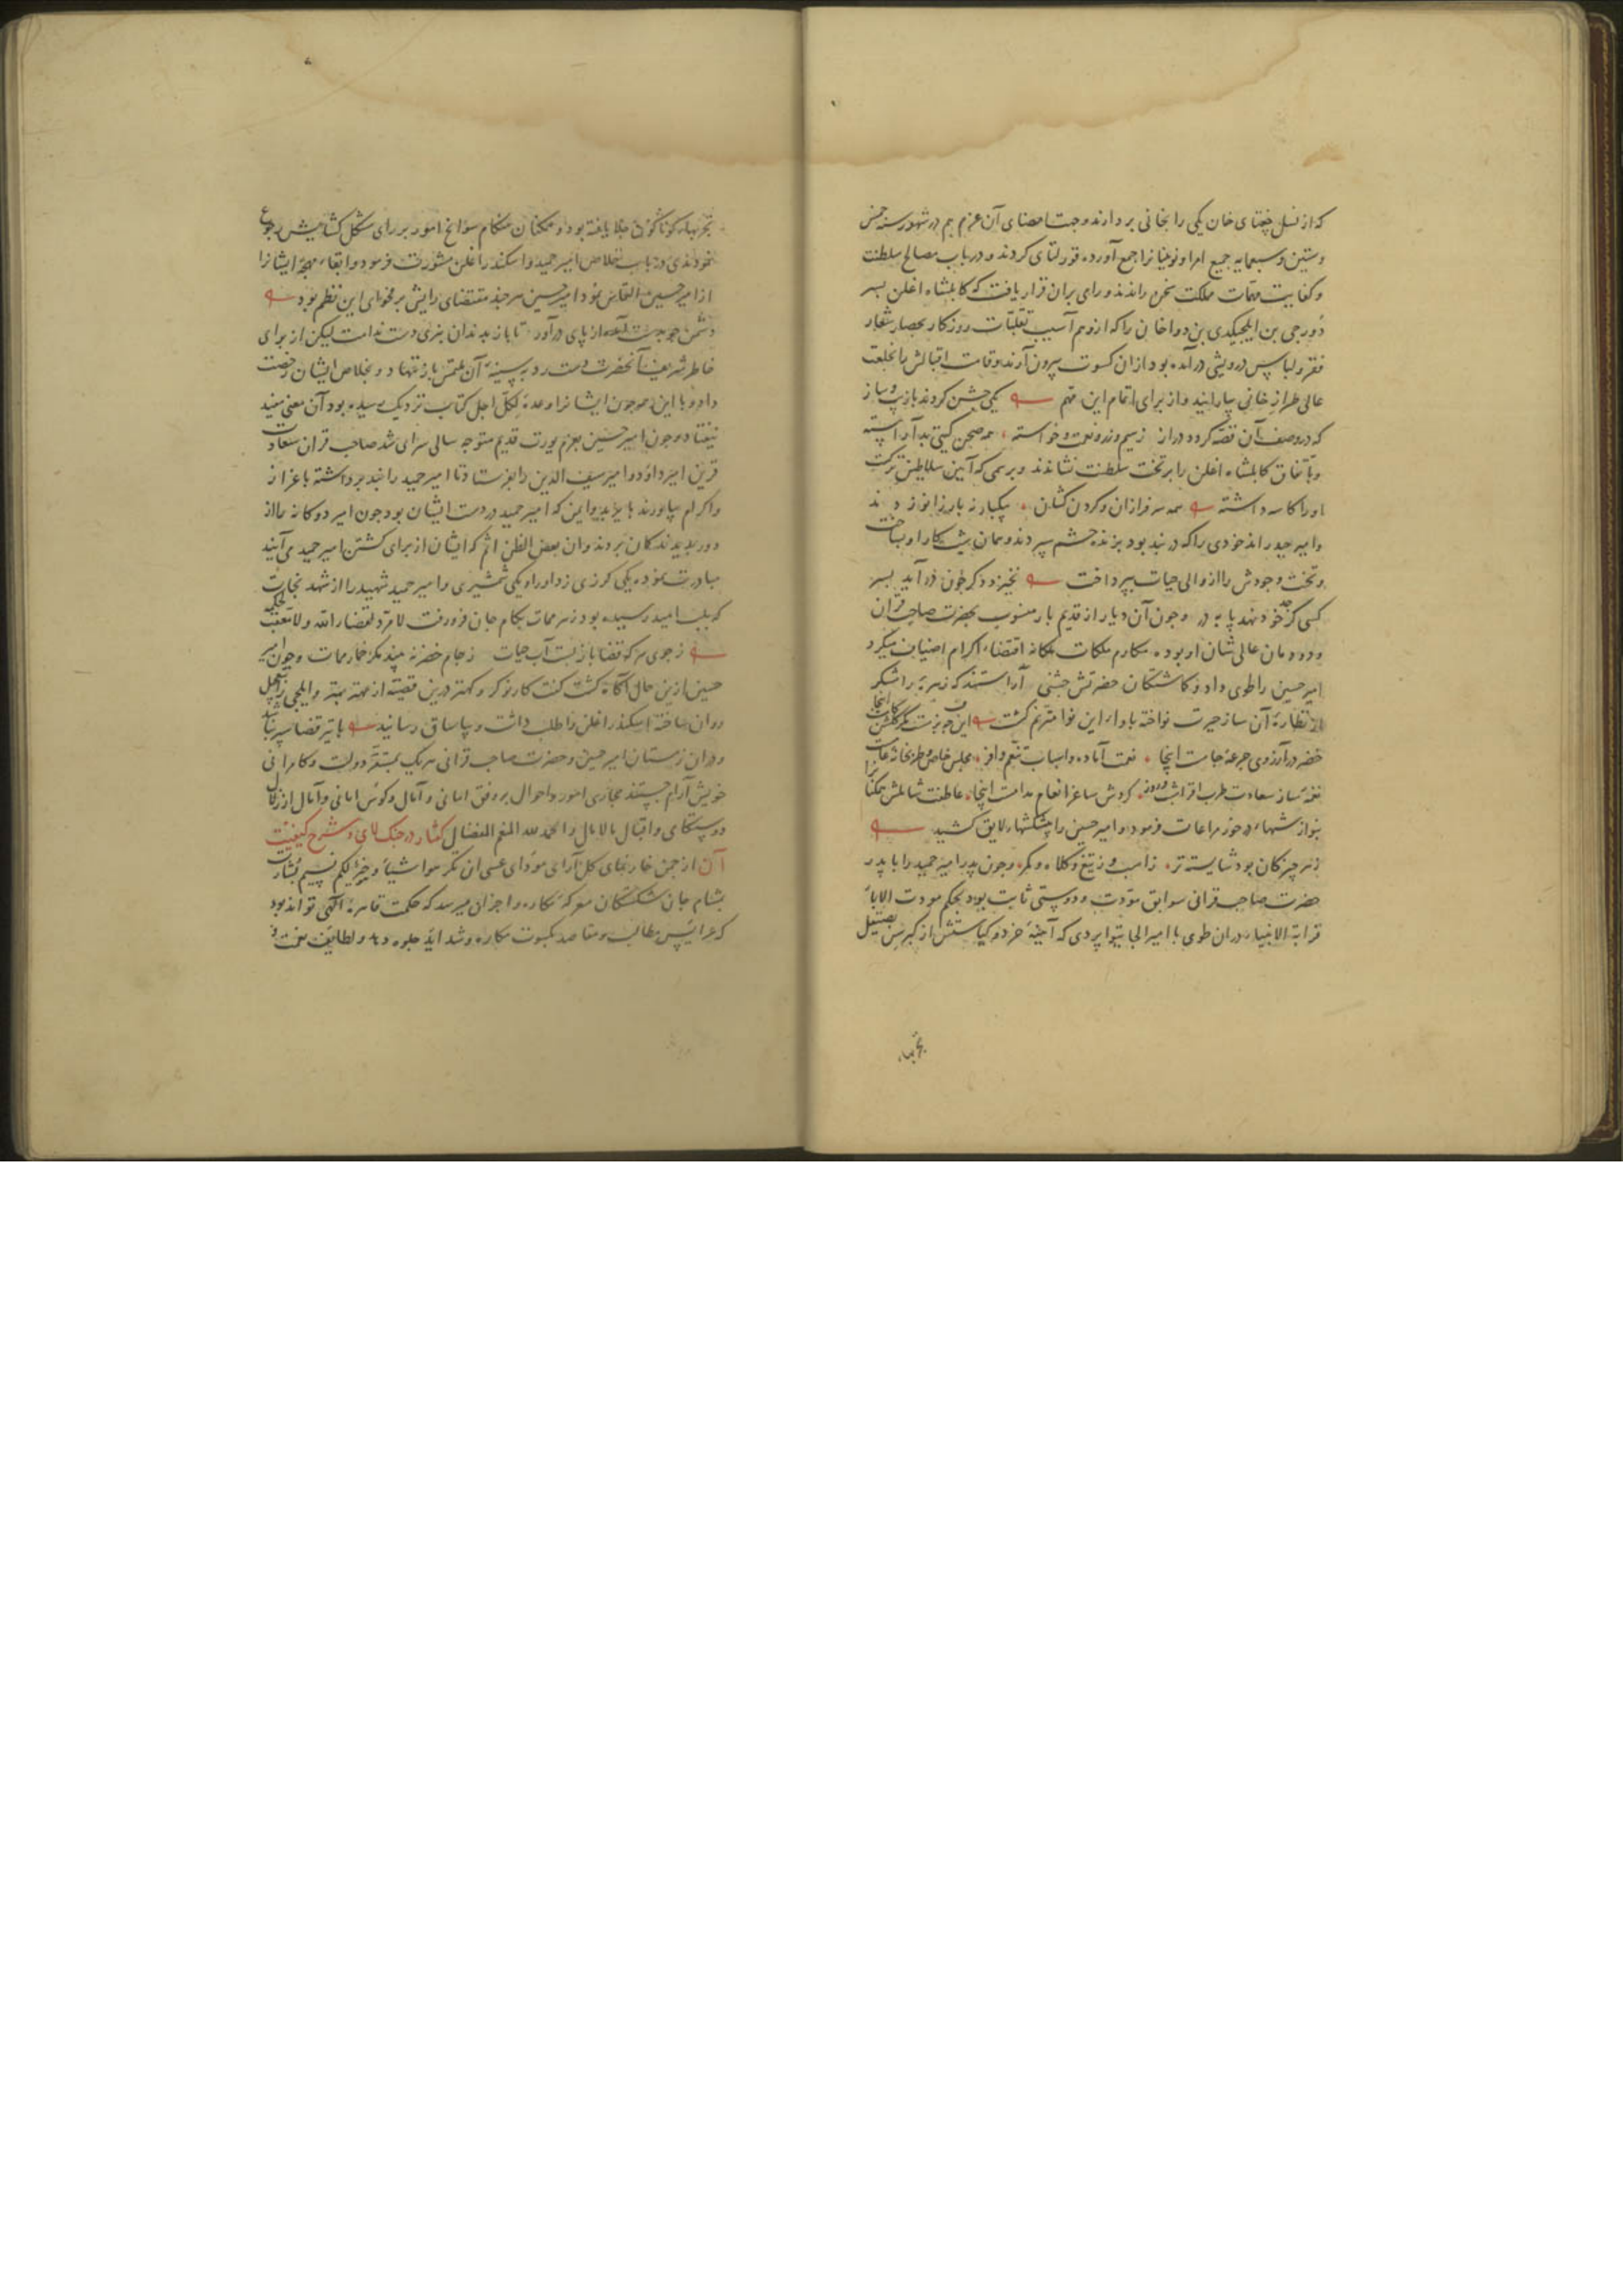 که از نسل چغتای خان یکی را بخانی بردارند و جهت امضای آن عزم هم در شهور سنه خمس
و ستین و سبعمایه جمیع امرا و نوینانرا جمع آورده قورلتای کردند و در باب مصالح سلطنت
و کفایت مهمات مملکت سخن راندند و رای بران قرار یافت که کابلشاه اغلن بسر
دورجی بن ایلجیکدی بن دوا خان را که از وهم آسیب تقلبات روزکار بحصار شعار
فقر و لباس درویشی در آمده بود ازان کسوت بیرون آرند و قامت اقبالش را بخلعت
عالی طراز خانی بیارایند و از برای اتمام این مهم یکی جشن کردند با زیب و ساز
که در وصف آن قصه کردد دراز ز سیم و زر و نعمت و خواسته همه صحن کیتی بد آراسته
و باتفاق کابلشاه اغلن را بر تخت سلطنت نشاندند و برسمی که آیین سلاطین ترکست
او را کاسه داشته همه سرفرازان و کردن کشان یکبار نه بار زانو زدند
و امیر حیدر اندخودی را که در بند بود بزنده حشم سپردند و همان شب کار او بساخت
و تخت وجودش را از والی حیات بپرداخت نخیزد دکر خون در آید بسر
کسی کز حد خود نهد پا بدر و جون آن دیار از قدیم باز منسوب بحضرت صاحب قران
و دودمان عالی شان او بوده مکارم ملکات ملکانه اقتضاء اکرام اضیاف میکرد
امیر حسین را طوی داد و کماشتکان حضرتش جشنی آراستند که زهره رامشکر
از نظاره آن ساز حیرت نواخته باواز این نوا مترنم کشت این جه بزمست مکر کلشن کامست اینجا
خضر در آرزوی جرعه جامست اینجا نعمت آماده و اسباب تنعم وافر مجلس خاص و طربخانه عامست
نغمه ساز سعادت طرب افزاست کردش ساغر انعام مدامست اینجا عاطفت شاملش همکنانرا
بنوازشهاء در خور مراعات فرمود و امیر حسین را پیشکشهاء لایق کشید
ز هر چیز کان بود شایسته تر ز اسب و ز تیغ و کلاه و کمر و جون پدر امیر حمید را با پدر
حضرت صاحب قرانی سوابق مودت و دوستی ثابت بود بحکم مودت الاباء
قرابة الابناء دران طوی با امیر الجایتو اپردی که آیینه خرد و کیاستش از کبر سن بصیقل
تجربهاء
تجربهاء کوناکون جلا یافته بود و همکنان هنکام سوانح امور بر رای مشکل کشایش رجوع
نمودندی در باب خلاص امیر حمید و اسکندر اغلن مشورت فرمود و ابقاء مهجه ایشانرا
از امیر حسین التماس نمود امیر حسین هر جند مقتضای رایش بر فحوای این نظم بود
دشمن جو بدست آمد از پای در آور تا باز بدندان نبری دست ندامت لیکن از برای
خاطر شریف آنحضرت دست رد بر سینه آن ملتمس باز ننهاد و بخلاص ایشان رخصت
داد و با این همه جون ایشانرا وعده لکل اجل کتاب نزدیک رسیده بود آن معنی مفید
نیفتاد و جون امیر حسین بعزم یورت قدیم متوجه سالی سرای شد صاحب قران سعادت
قرین امیر داؤد و امیر سیف الدین را بفرستاد تا امیر حمید را بند برداشته باعزاز
و اکرام بیاورند بایزید و ایمن که امیر حمید در دست ایشان بود جون امیر دوکانه را از
دور بدیدند کمان بردند و ان بعض الظن اثم که ایشان از برای کشتن امیر حمید می آیند
مبادرت نموده یکی کرزی زد او را و یکی شمشیری و امیر حمید شهید را از شهد نجات
که بلب امید رسیده بود زهر ممات بکام جان فرو رفت لا مرد لقضاء الله و لا معقب لحکمه
ز جوی هر که قضا باز بست آب حیات ز جام خضر نه بیند مکر خمار ممات و جون امیر
حسین ازین حال آکاه کشت کفت کار نوکر و کهتر درین قضیه از مهتر بهتر و ایلجی
روان ساخته اسکندر اغلن را طلب داشت و بیاساق رسانید با تیر قضا سپر نباشد
و دران زمستان امیر حسین و حضرت صاحب قرانی هر یک بمستقر دولت و کامرانی
خویش آرام جستند مجاری امور و احوال بر وفق امانی و آمال و کوس امانی و آمال از
دوستکامی و اقبال مالامال و الحمد لله المنعم المفضال کفتار در جنک لای و شرح کیفیت
آن از جمن خارنمای کل آرای مودای عسی ان تکرهوا شیئا و هو خیر لکم نسیم بشارت
بمشام جان شکستکان معرکه مکاره و احزان میرسد که حکمت قاهره الهی تواند بود
که عرایس مطالب و مقاصد بکسوت مکاره و شداید جلوه دهد و لطایف